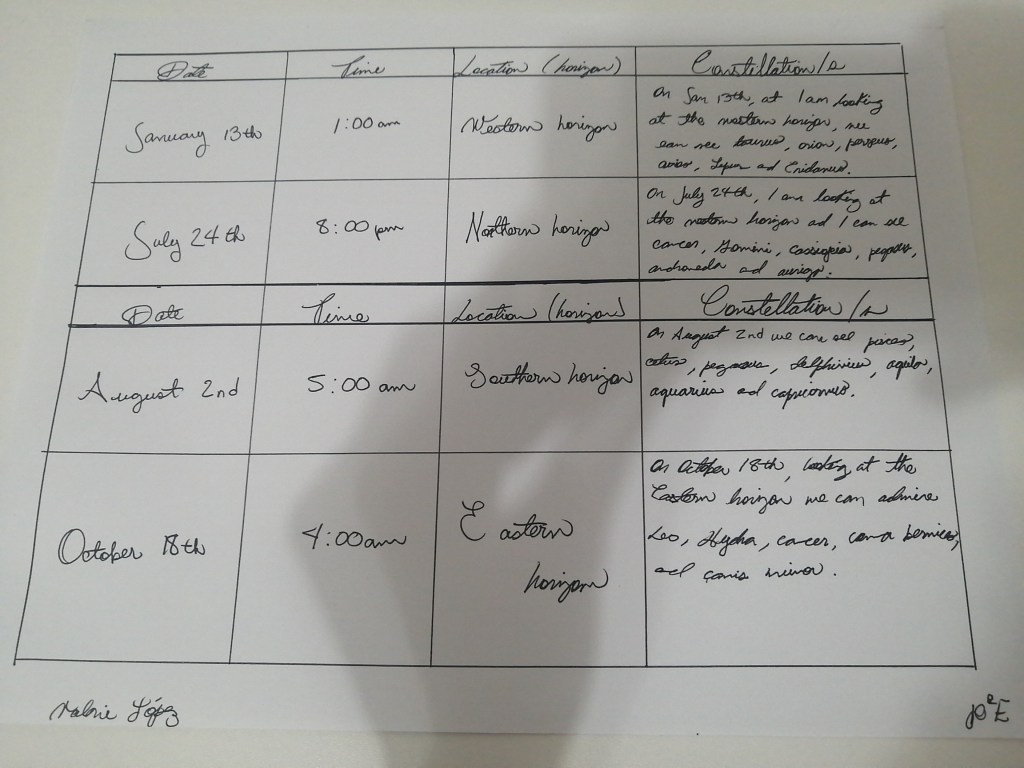 Date Time Location (horizon) Constellation/s
January 13th 1:00 am Western horizon
On Jan 13th, at I am looking
at the western horizon, we
can see taurus, orion, perseus,
Lepus and Eridanus.
July 24th 8:00 pm Northern horizon
On July 24th, I am looking at
the horizon ad I can see
cancer, Gemini, Cassiopeia,
andromeda ad auriga.
Date Time Location (horizon) Constellation/s
August 2nd 5:00 am Southern horizon
On August 2nd we can see pisces,
cetus, pegasus, delphinius, aquila,
aquarius ad capricornus.
October 18th 4:00am Eastern
horizon
On October 18th, looking at the
Eastern horizon we can admire
Leo, Hydra, cancer, coma
ad canis minor.
Valerie López